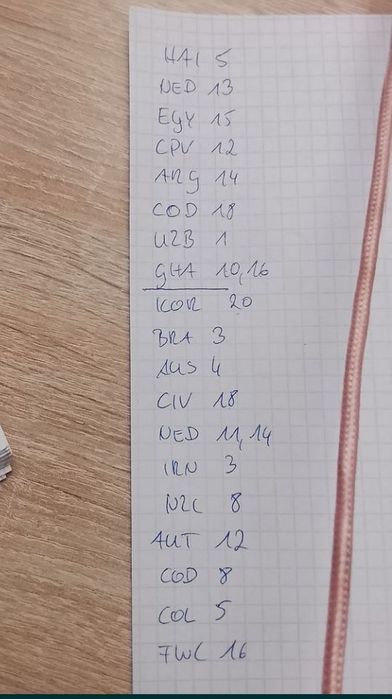 HAI 5
NED 13
EGY 15
CPV 12
ARG 14
COD 18
UZB 1
GHA 10,16
KOR 20
BRA 3
AUS 4
CIV 18
NED 11,14
IRN 3
NZL 8
AUT 12
COD 8
COL 5
FWC 16